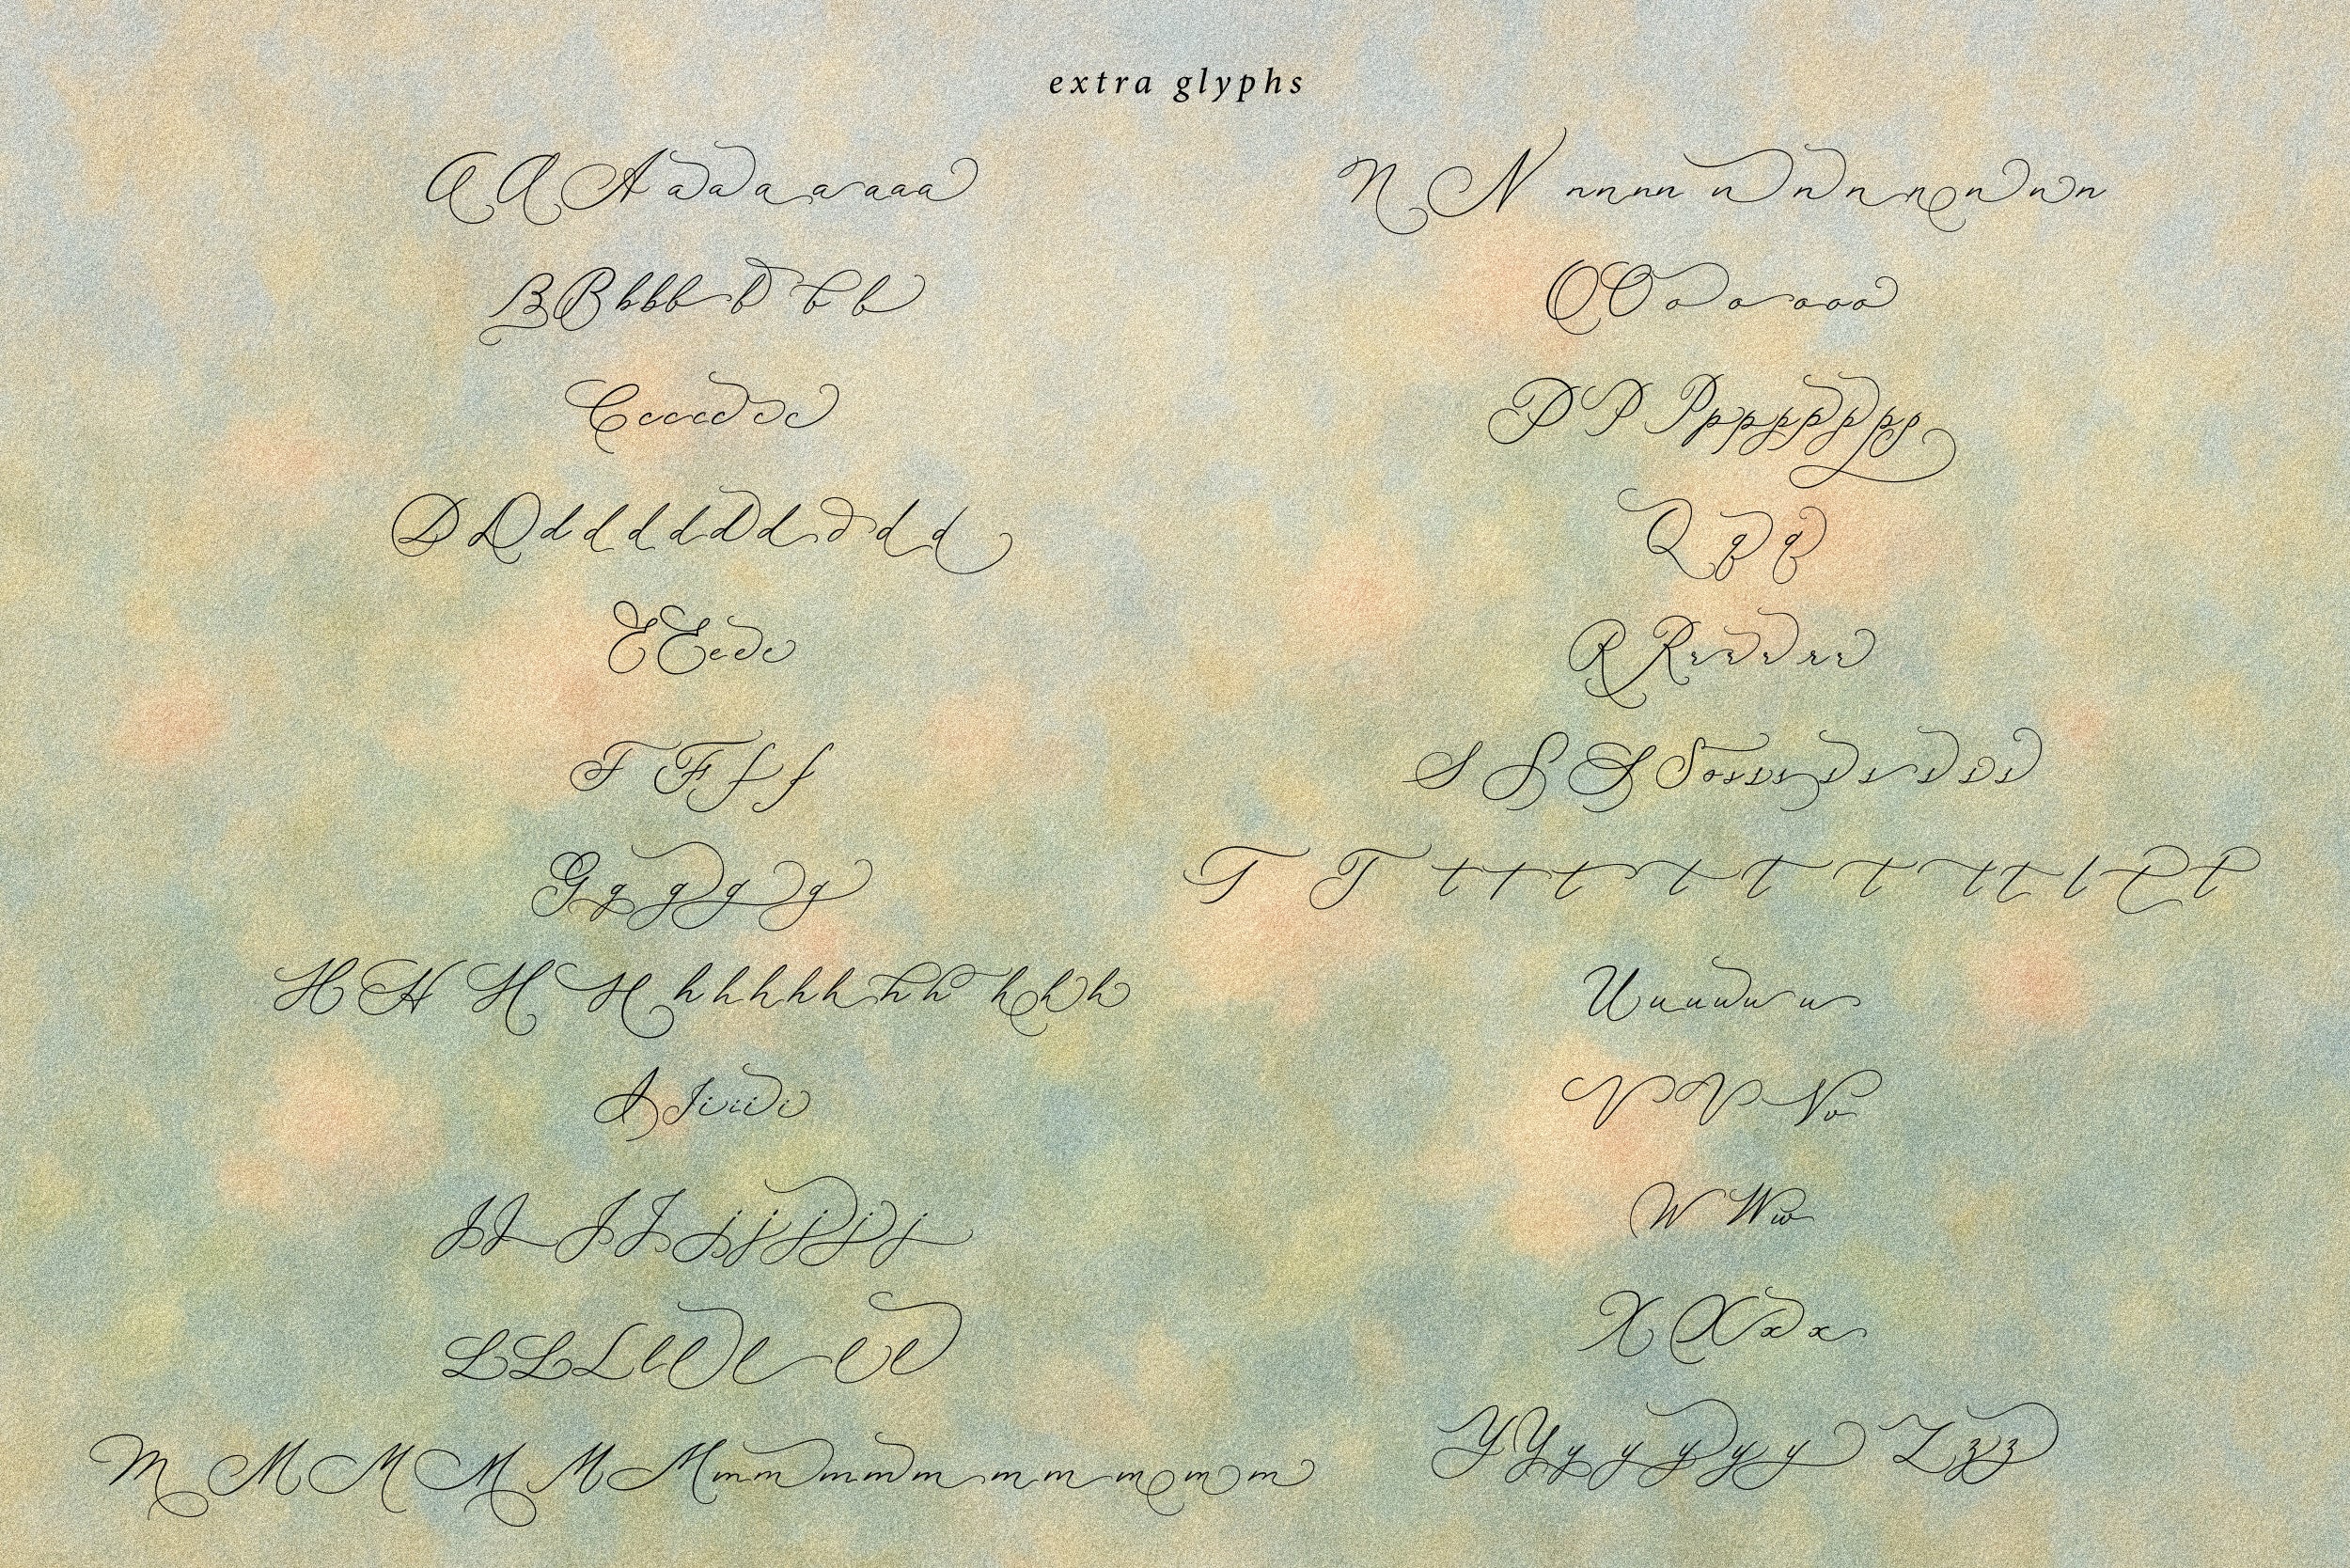 extra glyphs
A A A a a a a a a a
B B b b b b b b
C c c c c c c
D D d d d d d d d d d
E E e e e
F F f f
G g g g g
H H H H h h h h h h h h h h
I I i i i i i
J J J J j j j j j
L L L l l l l l
M M M M M M m m m m m m m m m m
N N n n n n n n n n n n n
O O o o o o o
P P P p p p p p p p p
Q q q
R R r r r r r
S S S S o s s s s s s s s s
T T t t t t t t t t l t t
U u u u u u
V V V v
W W w
X X x x
Y Y y y y y y Z z z